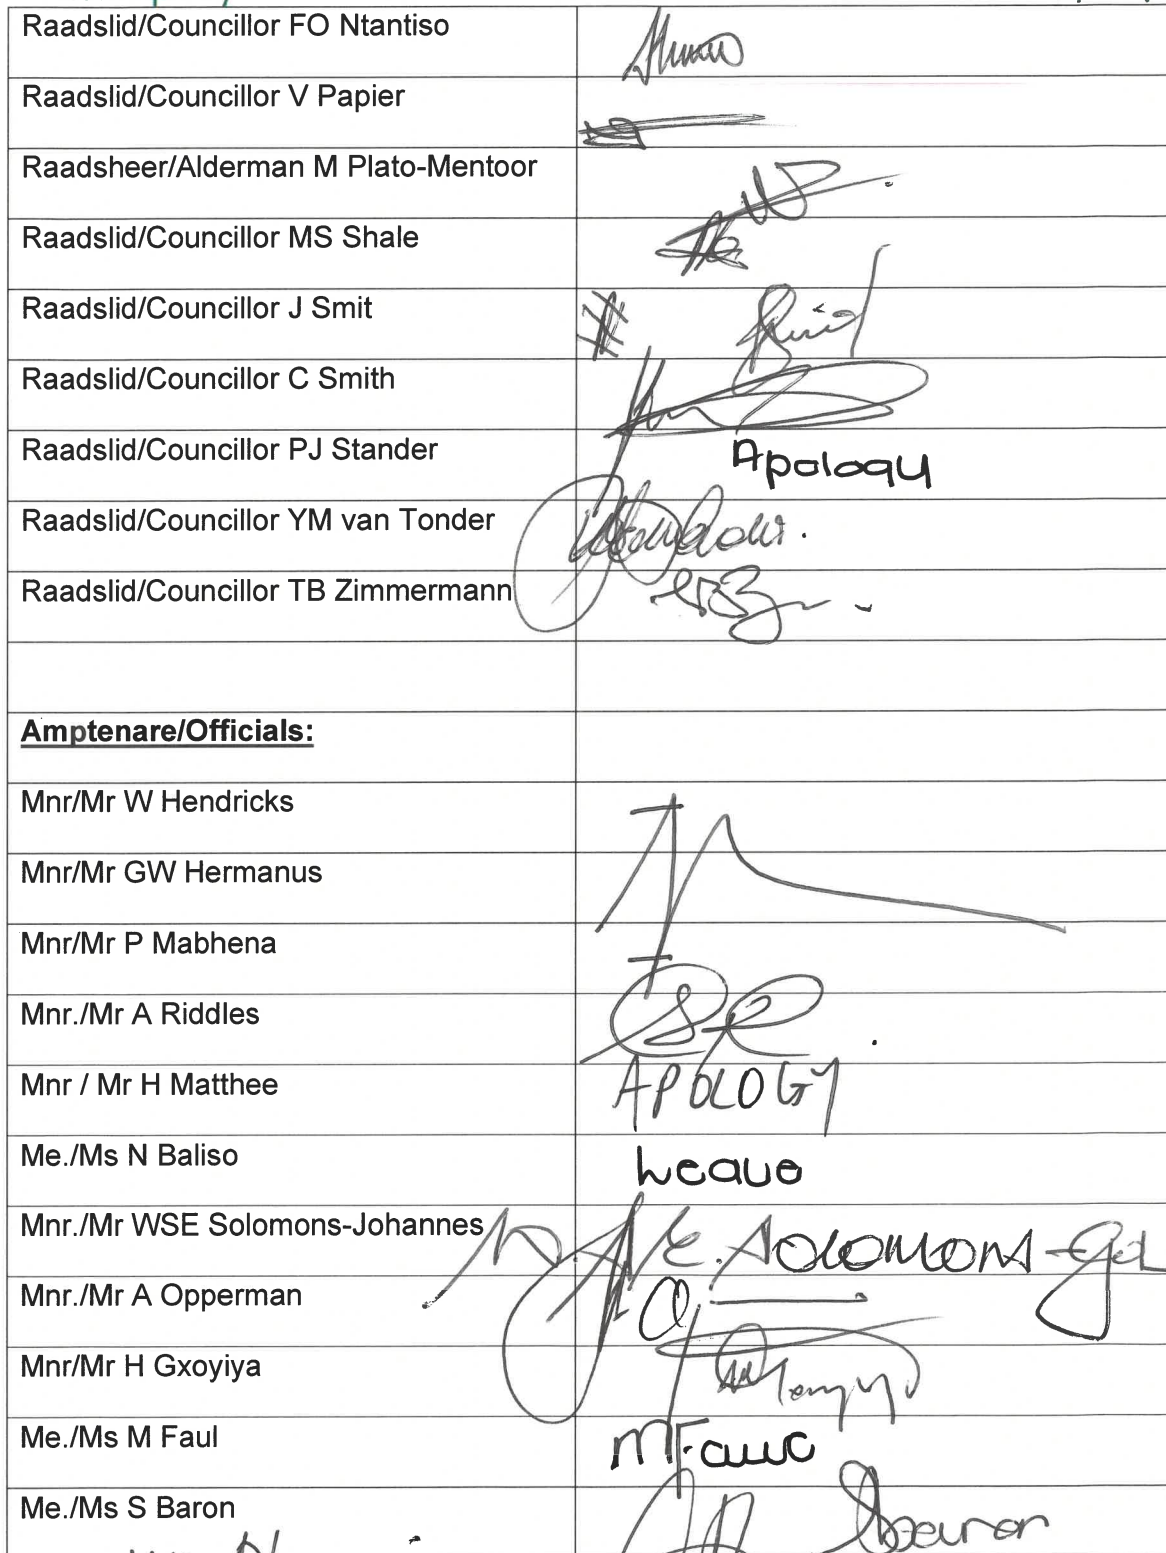 Raadslid/Councillor FO Ntantiso
Raadslid/Councillor V Papier
Raadsheer/Alderman M Plato-Mentoor
Raadslid/Councillor MS Shale
Raadslid/Councillor J Smit
Raadslid/Councillor C Smith
Raadslid/Councillor PJ Stander Apology
Raadslid/Councillor YM van Tonder
Raadslid/Councillor TB Zimmermann
Amptenare/Officials:
Mnr/Mr W Hendricks
Mnr/Mr GW Hermanus
Mnr/Mr P Mabhena
Mnr./Mr A Riddles
Mnr / Mr H Matthee APOLOGY
Me./Ms N Baliso Leave
Mnr./Mr WSE Solomons-Johannes E. SOLOMONS
Mnr./Mr A Opperman
Mnr/Mr H Gxoyiya
Me./Ms M Faul MFaul
Me./Ms S Baron SBaron